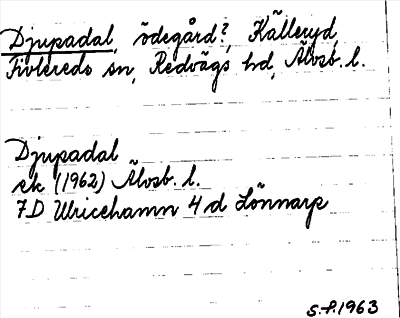 Djupadal, ödegård?, Källeryd,
Fivlereds sn, Redvägs hd, Älvsb. l.
Djupadal
ek (1962) Älvsb. l.
7D Ulricehamn 4 d Lönnarp
S.P. 1963